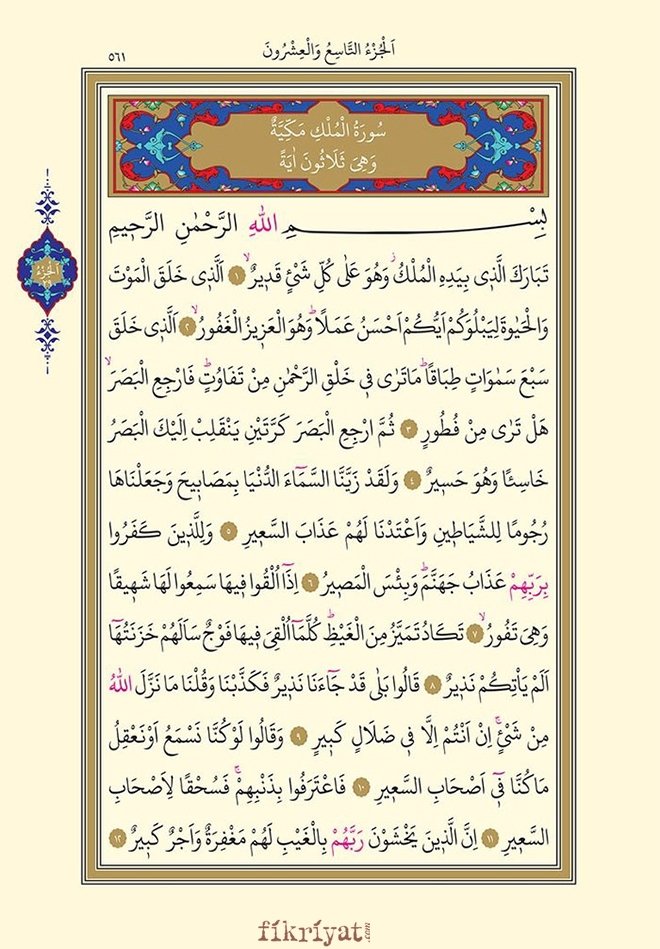 اَلْجُزْءُ التَّاسِعُ وَالْعِشْرُونَ
٥٦١
سُورَةُ الْمُلْكِ مَكِّيَّةٌ
وَهِيَ ثَلَاثُونَ اٰيَةً
بِسْمِ اللّٰهِ الرَّحْمٰنِ الرَّحٖيمِ
تَبَارَكَ الَّذٖي بِيَدِهِ الْمُلْكُؗ وَهُوَ عَلٰى كُلِّ شَيْءٍ قَدٖيرٌۙ ١ اَلَّذٖي خَلَقَ الْمَوْتَ
وَالْحَيٰوةَ لِيَبْلُوَكُمْ اَيُّكُمْ اَحْسَنُ عَمَلًاؕ وَهُوَ الْعَزٖيزُ الْغَفُورُۙ ٢ اَلَّذٖي خَلَقَ
سَبْعَ سَمٰوَاتٍ طِبَاقًاؕ مَا تَرٰى فٖي خَلْقِ الرَّحْمٰنِ مِنْ تَفَاوُتٍؕ فَارْجِعِ الْبَصَرَۙ
هَلْ تَرٰى مِنْ فُطُورٍ ٣ ثُمَّ ارْجِعِ الْبَصَرَ كَرَّتَيْنِ يَنْقَلِبْ اِلَيْكَ الْبَصَرُ
خَاسِئًا وَهُوَ حَسٖيرٌ ٤ وَلَقَدْ زَيَّنَّا السَّمَٓاءَ الدُّنْيَا بِمَصَابٖيحَ وَجَعَلْنَاهَا
رُجُومًا لِلشَّيَاطٖينِ وَاَعْتَدْنَا لَهُمْ عَذَابَ السَّعٖيرِ ٥ وَلِلَّذٖينَ كَفَرُوا
بِرَبِّهِمْ عَذَابُ جَهَنَّمَؕ وَبِئْسَ الْمَصٖيرُ ٦ اِذَٓا اُلْقُوا فٖيهَا سَمِعُوا لَهَا شَهٖيقًا
وَهِيَ تَفُورُۙ ٧ تَكَادُ تَمَيَّزُ مِنَ الْغَيْظِؕ كُلَّمَٓا اُلْقِيَ فٖيهَا فَوْجٌ سَاَلَهُمْ خَزَنَتُهَٓا
اَلَمْ يَأْتِكُمْ نَذٖيرٌ ٨ قَالُوا بَلٰى قَدْ جَٓاءَنَا نَذٖيرٌ فَكَذَّبْنَا وَقُلْنَا مَا نَزَّلَ اللّٰهُ
مِنْ شَيْءٍۚ اِنْ اَنْتُمْ اِلَّا فٖي ضَلَالٍ كَبٖيرٍ ٩ وَقَالُوا لَوْ كُنَّا نَسْمَعُ اَوْ نَعْقِلُ
مَا كُنَّا فٖٓي اَصْحَابِ السَّعٖيرِ ١٠ فَاعْتَرَفُوا بِذَنْبِهِمْۚ فَسُحْقًا لِاَصْحَابِ
السَّعٖيرِ ١١ اِنَّ الَّذٖينَ يَخْشَوْنَ رَبَّهُمْ بِالْغَيْبِ لَهُمْ مَغْفِرَةٌ وَاَجْرٌ كَبٖيرٌ ١٢
اَلْجُزْءُ
٢٩
fikriyat.com